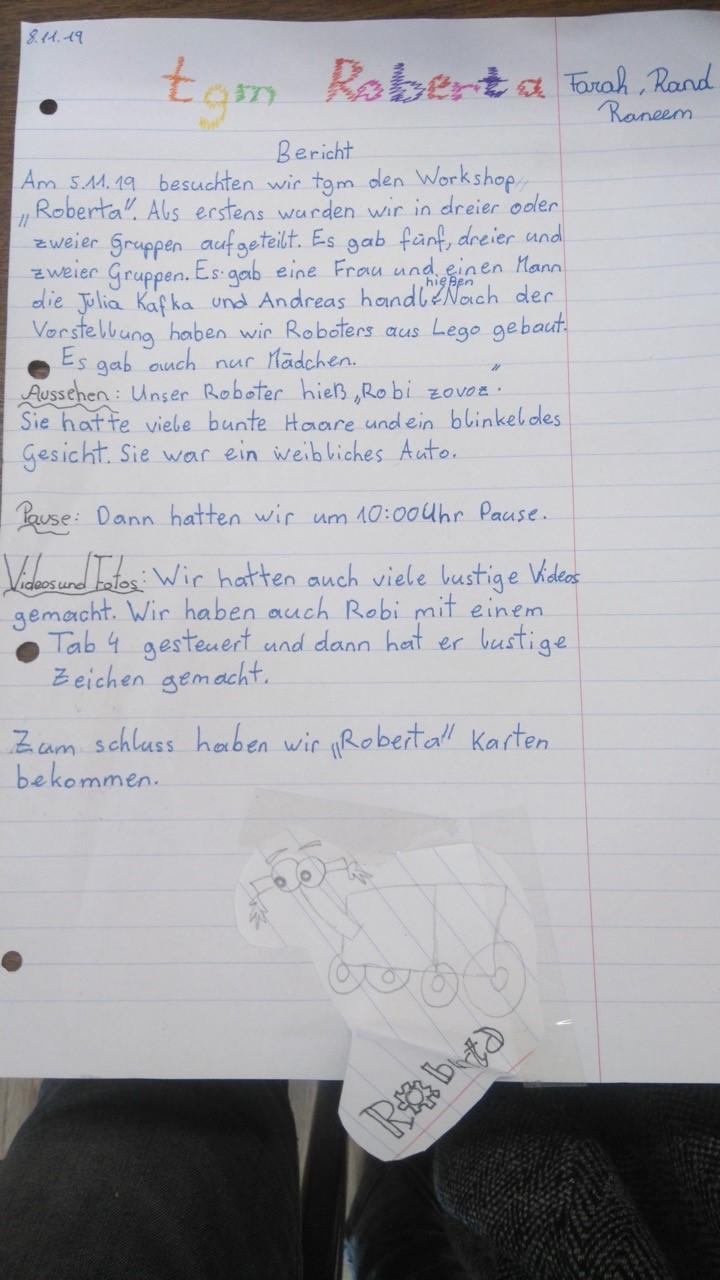 8.11.19
tgm Roberta
Farah, Rand
Raneem
Bericht
Am 5.11.19 besuchten wir tgm den Workshop
„Roberta". Als erstens wurden wir in dreier oder
zweier Gruppen aufgeteilt. Es gab fünf, dreier und
zweier Gruppen. Es gab eine Frau und einen Mann
die Julia Kafka und Andreas handl hießen. Nach der
Vorstellung haben wir Roboters aus Lego gebaut.
Es gab auch nur Mädchen.
Aussehen: Unser Roboter hieß „Robi zovoz".
Sie hatte viele bunte Haare und ein blinkeldes
Gesicht. Sie war ein weibliches Auto.
Pause: Dann hatten wir um 10:00 Uhr Pause.
Videos und Fotos: Wir hatten auch viele lustige Videos
gemacht. Wir haben auch Robi mit einem
Tab 4 gesteuert und dann hat er lustige
Zeichen gemacht.
Zum schluss haben wir „Roberta" Karten
bekommen.
Roberta